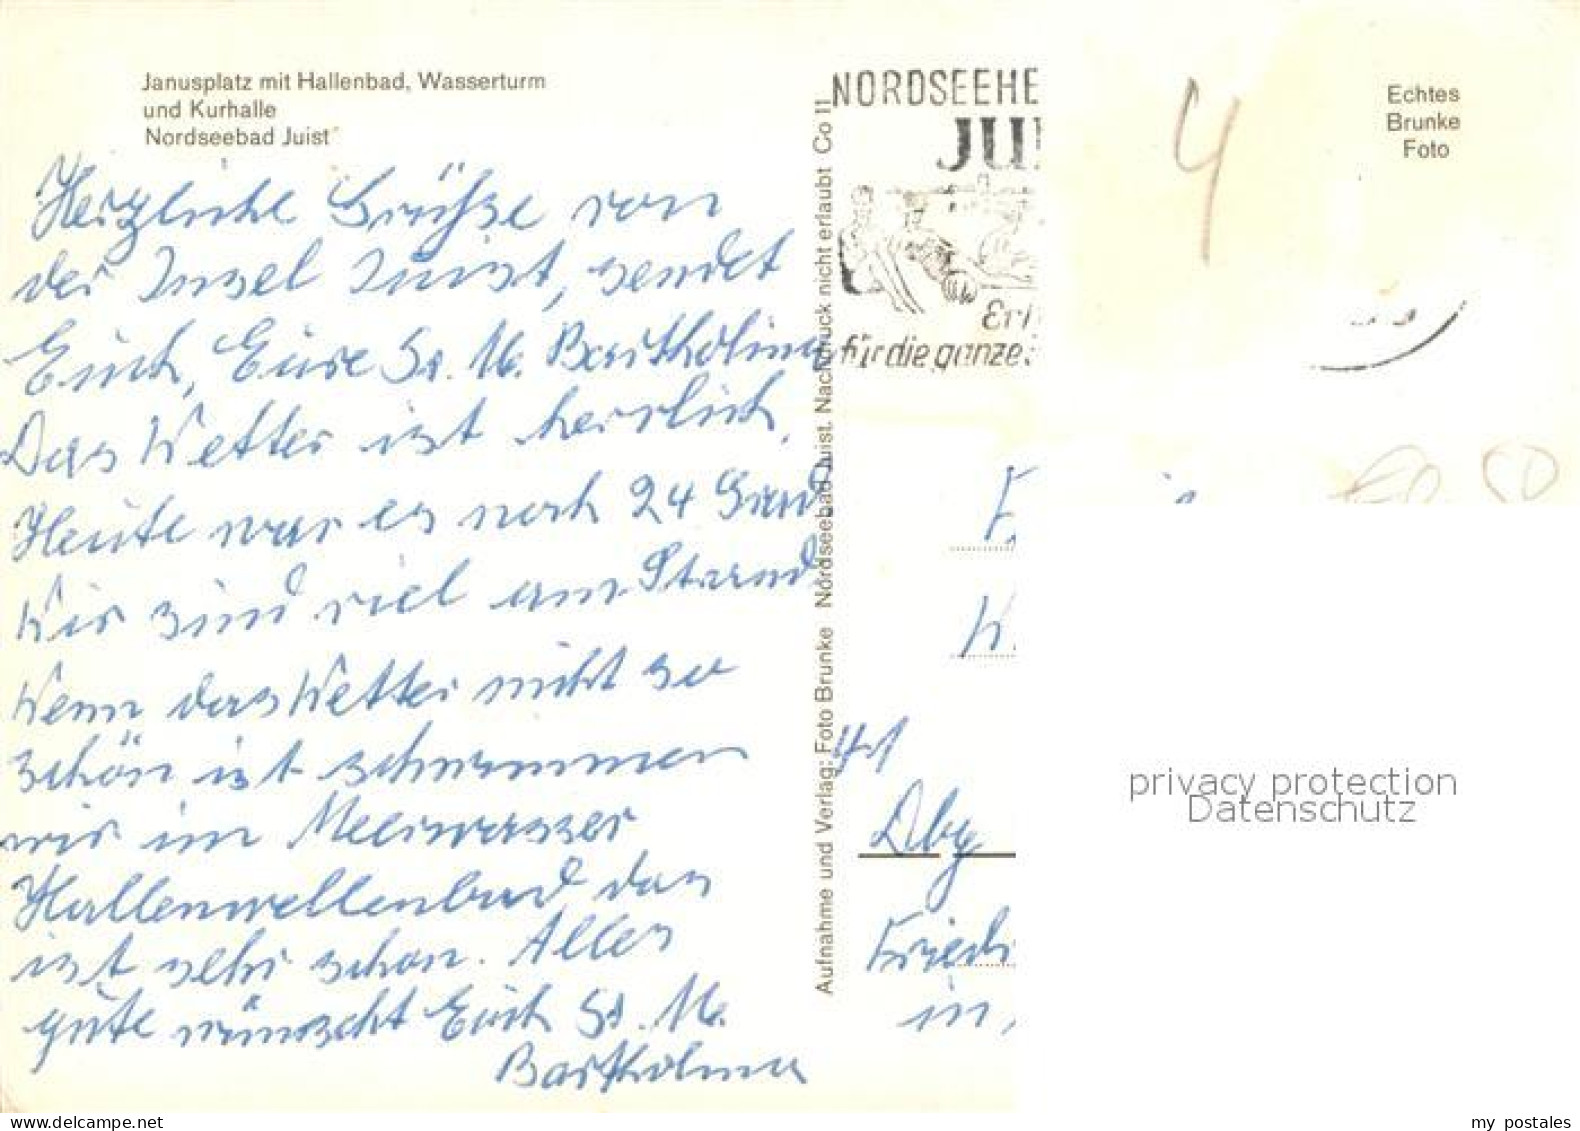 Janusplatz mit Hallenbad, Wasserturm
und Kurhalle
Nordseebad Juist
Herzliche Grüße von
der Insel Juist, sendet
Euch, Eure Sr. M. Bartholina
Das Wetter ist herrlich,
Heute war es noch 24 Grad
Wir sind viel am Strand
Wenn das Wetter nicht so
schön ist schwimmen
wir im Meerwasser
Hallenwellenbad das
ist sehr schön. Alles
gute wünscht Euch Sr. M.
Bartholina
Aufnahme und Verlag: Foto Brunke Nordseebad Juist. Nachdruck nicht erlaubt Co 11
NORDSEEHE
JUI
Er
für die ganze
4
Echtes
Brunke
Foto
F
K
41
Dbg
Friedr
in
privacy protection
Datenschutz
my postales
www.delcampe.net